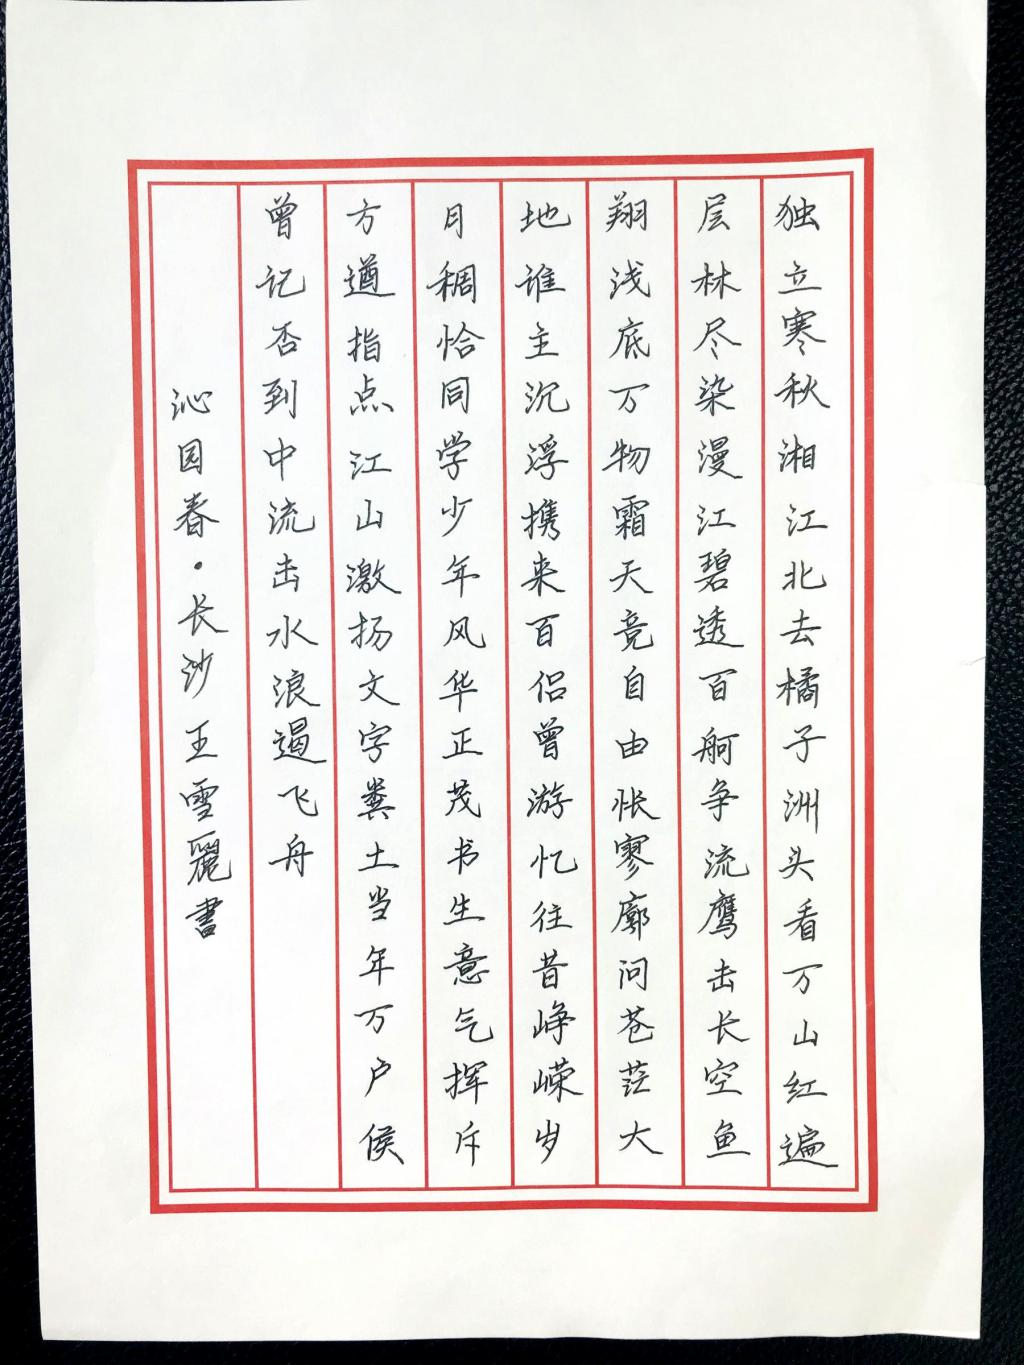 独立寒秋湘江北去橘子洲头看万山红遍
层林尽染漫江碧透百舸争流鹰击长空鱼
翔浅底万物霜天竞自由怅寥廓问苍茫大
地谁主沉浮携来百侣曾游忆往昔峥嵘岁
月稠恰同学少年风华正茂书生意气挥斥
方遒指点江山激扬文字粪土当年万户侯
曾记否到中流击水浪遏飞舟
沁园春·长沙王雪麗書